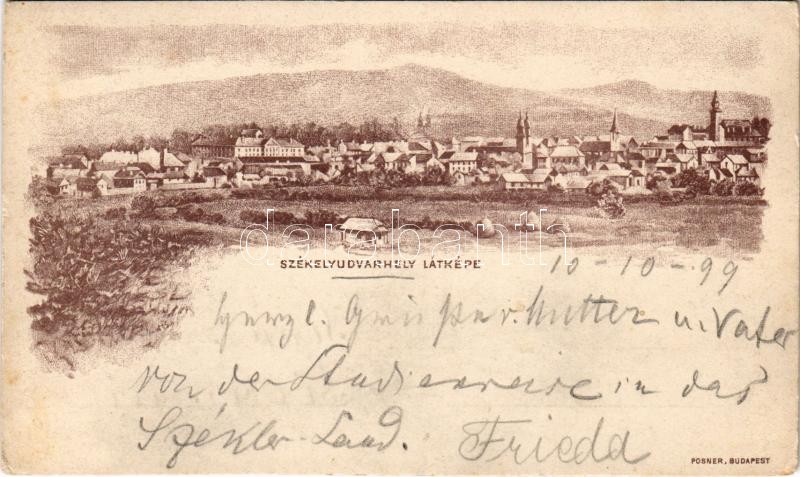 darabanth
SZÉKELYUDVARHELY LÁTKÉPE
10-10-99
Herzl. Grüße v. Mutter u. Vater
von der Studienreise in das
Székler-Land. Frieda
POSNER, BUDAPEST